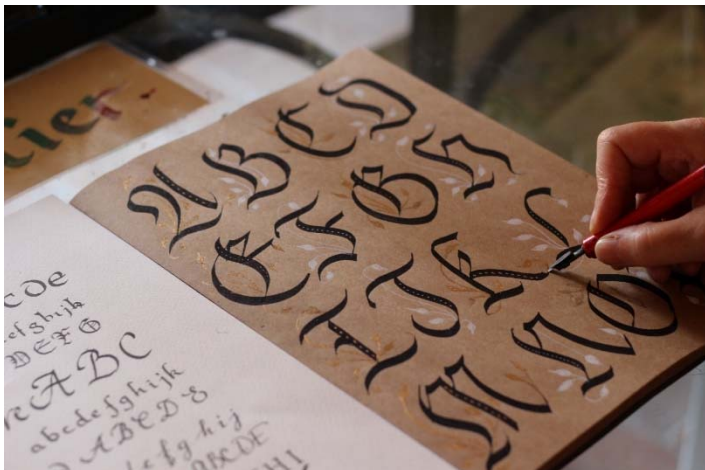 lier
A B C D
E F G H
I J K L
M N O
CDE
efghijk
DEFG
ABC
abcdefghijk
ABCD
efghij
ABCDE